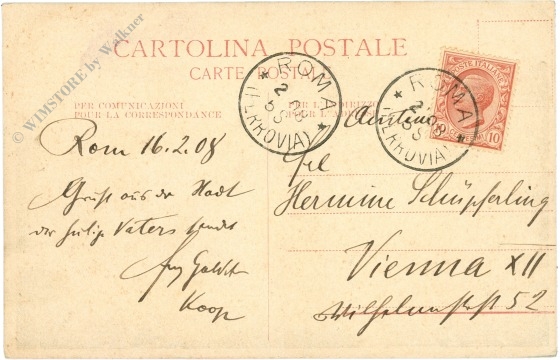 © WIMSTORE by Walkner
CARTOLINA POSTALE
CARTE POSTALE
PER COMUNICAZIONI
POUR LA CORRESPONDANCE
PER L'INDIRIZZO
POUR L'ADRESSE
ROMA
(FERROVIA)
ROMA
(FERROVIA)
POSTE ITALIANE
10
Rom 16.2.08
Gruß aus der Stadt
der heilig Vaters sendet
Koop
Austria
Hermine Schüpferling
Vienna XII
Wilhelmstraße 52